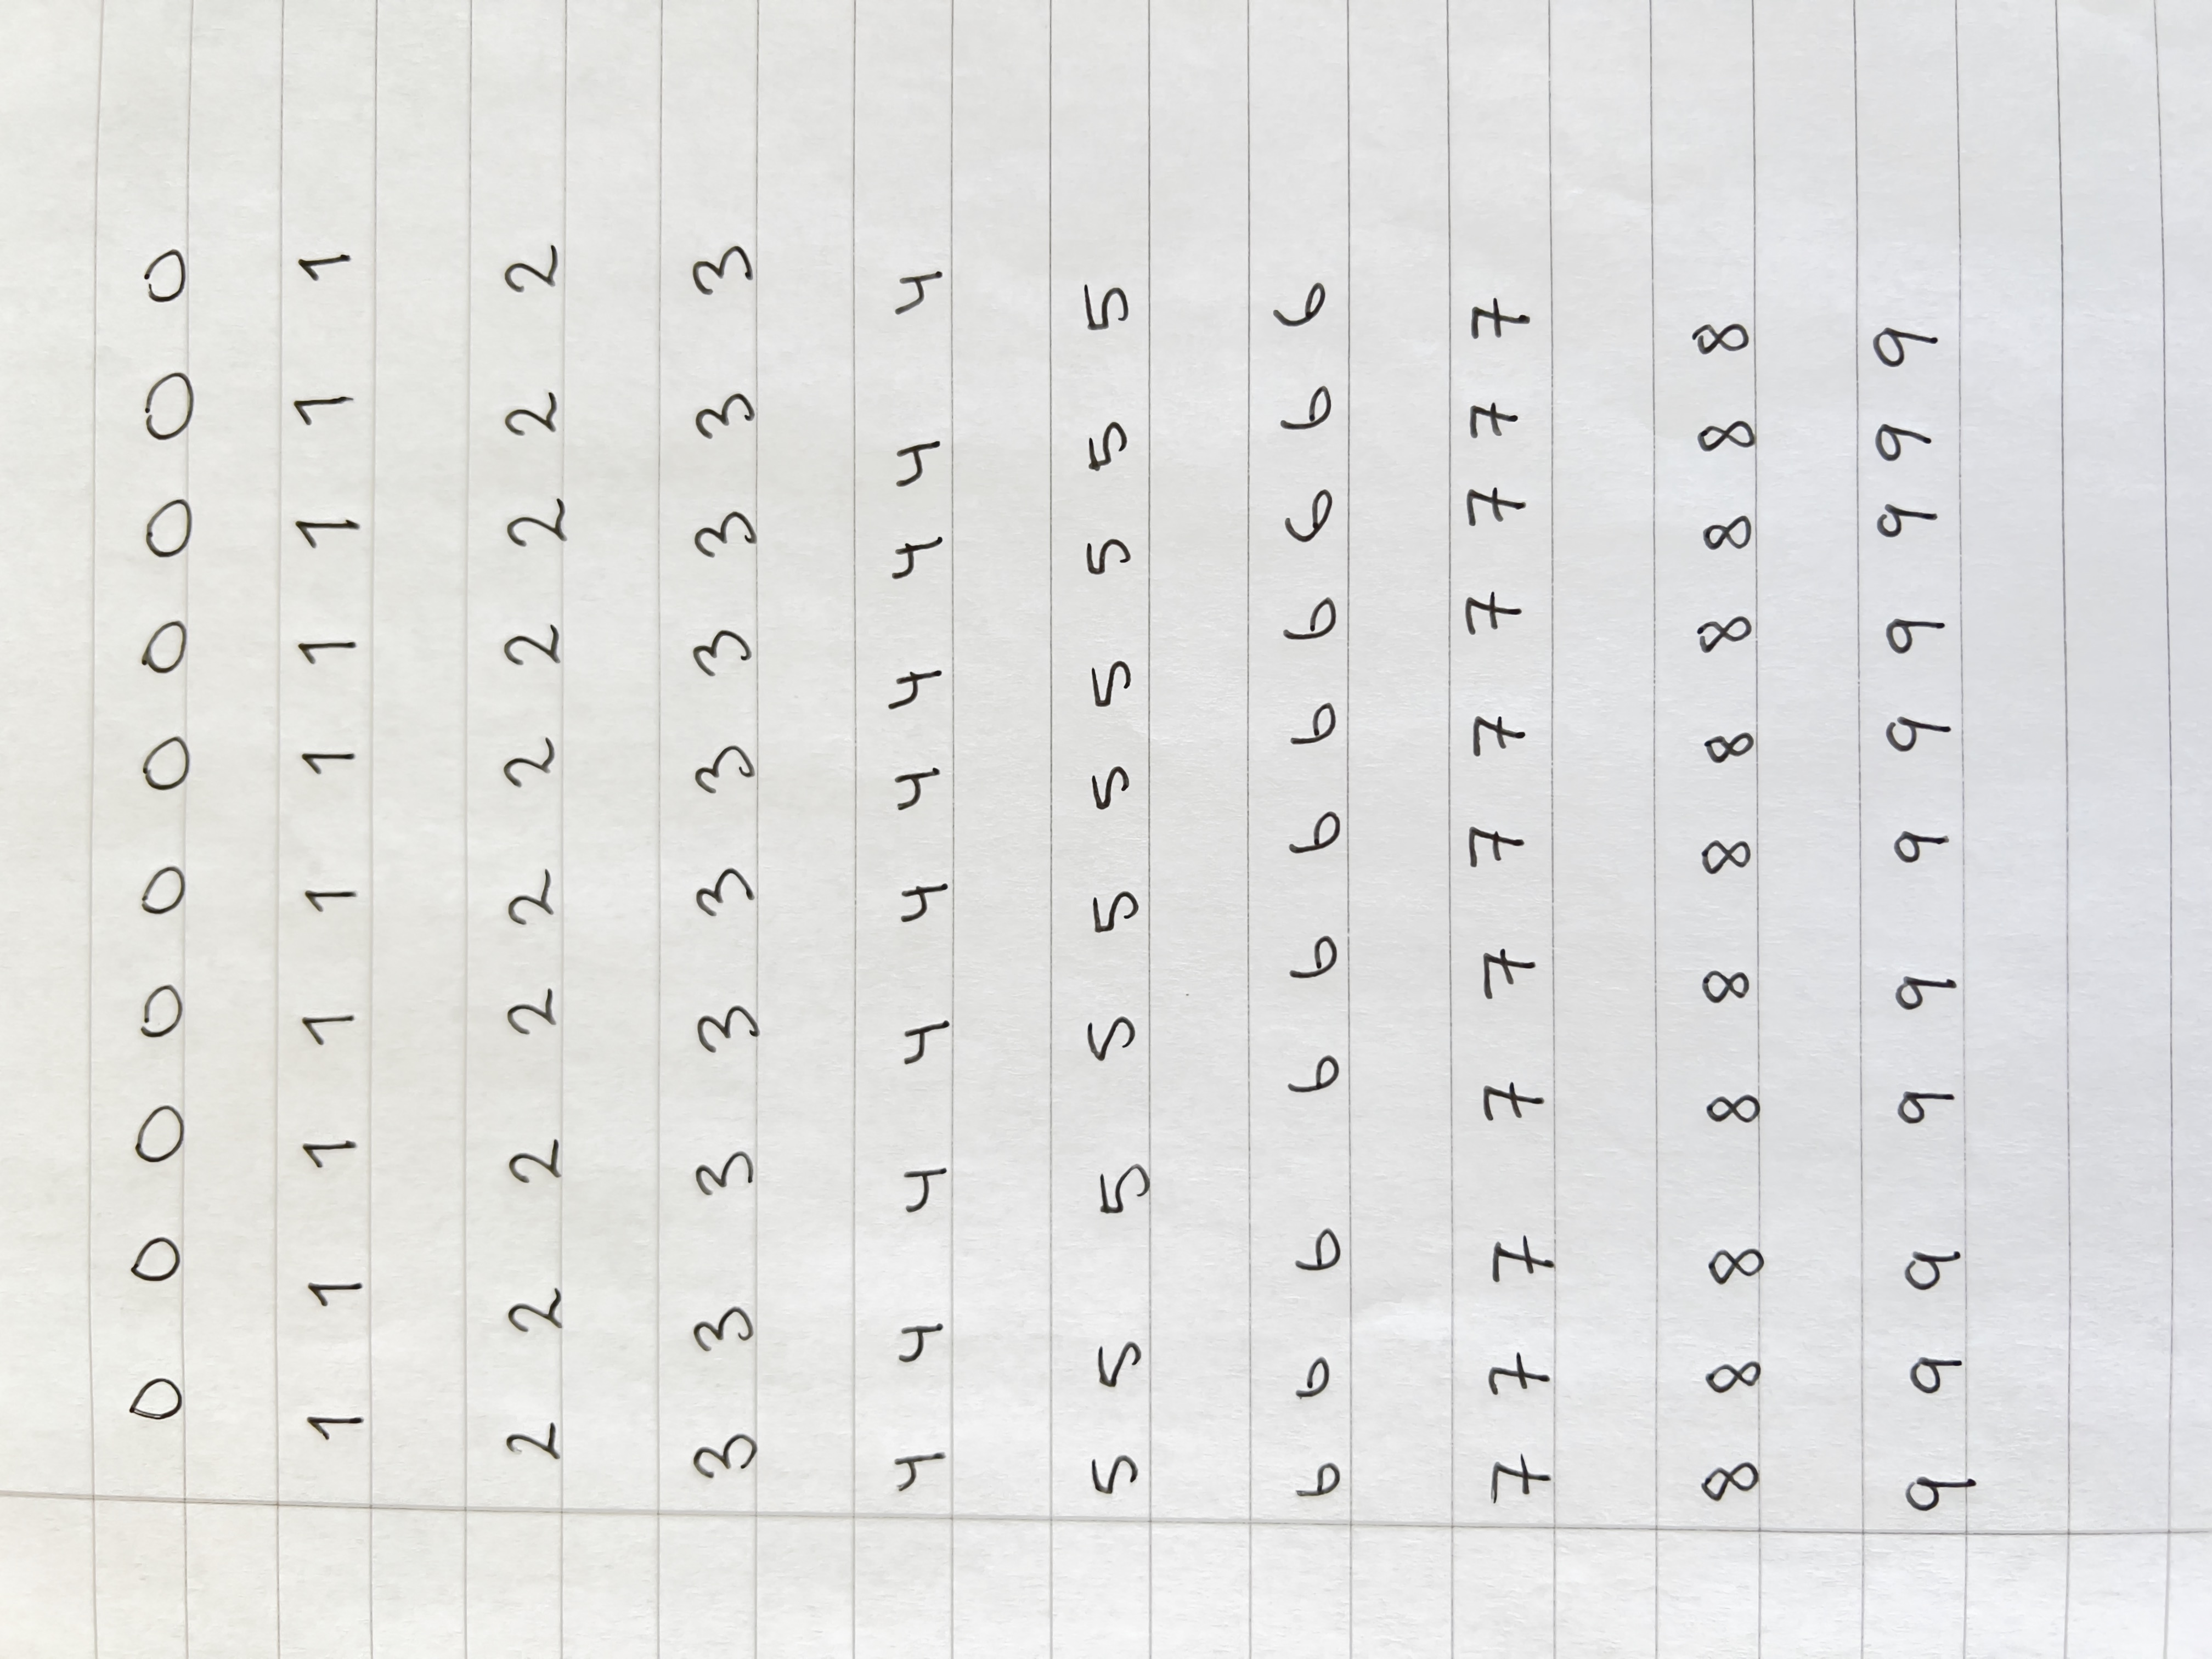 0 0 0 0 0 0 0 0 0 0
1 1 1 1 1 1 1 1 1 1
2 2 2 2 2 2 2 2 2 2
3 3 3 3 3 3 3 3 3 3
4 4 4 4 4 4 4 4 4 4
5 5 5 5 5 5 5 5 5 5
6 6 6 6 6 6 6 6 6 6 6
7 7 7 7 7 7 7 7 7 7 7
8 8 8 8 8 8 8 8 8 8 8
9 9 9 9 9 9 9 9 9 9 9